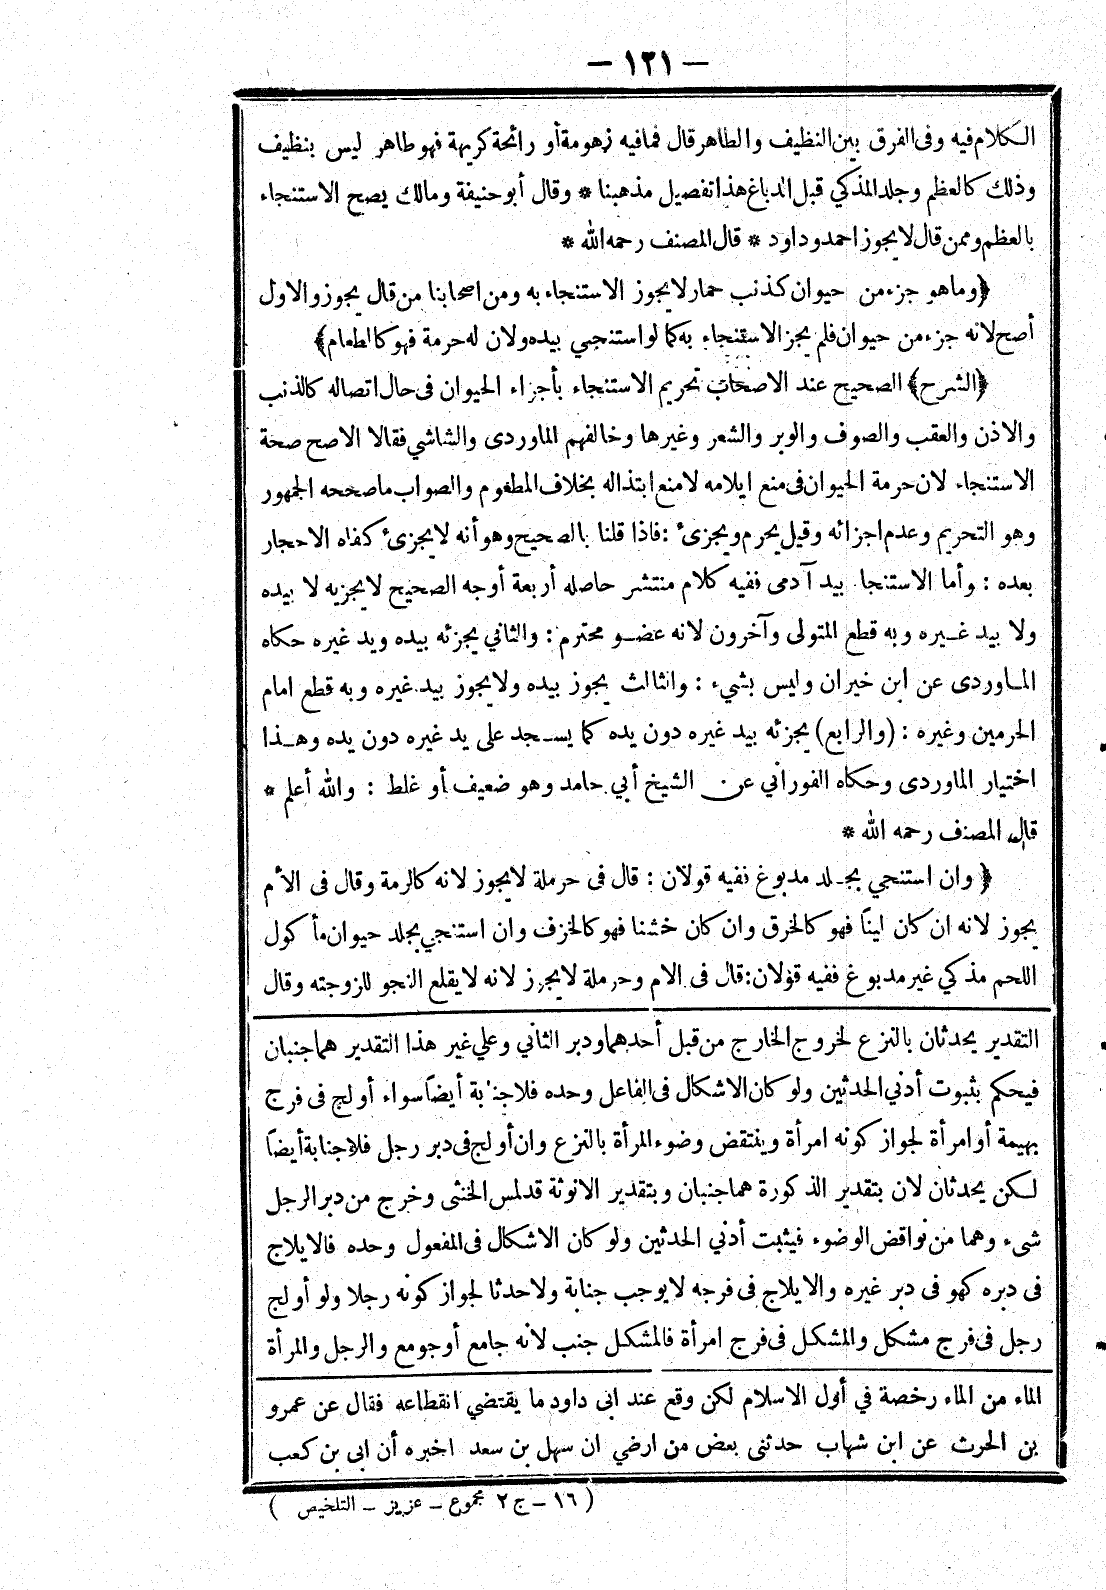 — ١٢١ —
الكلام فيه وفى الفرق بين النظيف والطاهر قال فمافيه زهومة أو رائحة كريهة فهو طاهر ليس بنظيف
وذلك كالعظم وجلد المذكي قبل الدباغ هذا تفصيل مذهبنا * وقال أبو حنيفة ومالك يصح الاستنجاء
بالعظم وممن قال لا يجوز احمد وداود * قال المصنف رحمه الله *
﴿وماهو جزء من حيوان كذنب حمار لا يجوز الاستنجاء به ومن اصحابنا من قال يجوز والاول
أصح لانه جزء من حيوان فلم يجز الاستنجاء به كما لو استنجي بيده ولان له حرمة فهو كالطعام﴾
﴿الشرح﴾ الصحيح عند الاصحاب تحريم الاستنجاء بأجزاء الحيوان فى حال اتصاله كالذنب
والاذن والعقب والصوف والوبر والشعر وغيرها وخالفهم الماوردى والشاشي فقالا الاصح صحة
الاستنجاء لان حرمة الحيوان فى منع ايلامه لا منع ابتذاله بخلاف المطعوم والصواب ماصححه الجمهور
وهو التحريم وعدم اجزائه وقيل يحرم ويجزئ : فاذا قلنا بالصحيح وهو أنه لا يجزئ كفاه الاحجار
بعده : وأما الاستنجا بيد آدمى ففيه كلام منتشر حاصله أربعة أوجه الصحيح لا يجزيه لا بيده
ولا بيد غـيره وبه قطع المتولى وآخرون لانه عضـو محترم : والثاني يجزئه بيده ويد غيره حكاه
المـاوردى عن ابن خيران وليس بشيء : والثالث يجوز بيده ولايجوز بيد غيره وبه قطع امام
الحرمين وغيره : (والرابع) يجزئه بيد غيره دون يده كما يسـجد على يد غيره دون يده وهـذا
اختيار الماوردى وحكاه الفوراني عن الشيخ أبي حامد وهو ضعيف أو غلط : والله أعلم *
قال المصنف رحمه الله *
﴿ وان استنجي بجـلد مدبوغ ففيه قولان : قال فى حرملة لايجوز لانه كالرمة وقال فى الأم
يجوز لانه ان كان لينًا فهو كالخرق وان كان خشنا فهو كالخزف وان استنجي بجلد حيوان مأكول
اللحم مذكي غير مدبوغ ففيه قولان : قال فى الام وحرملة لايجوز لانه لا يقلع النجو للزوجته وقال
التقدير يحدثان بالنزع لخروج الخارج من قبل أحدهما ودبر الثاني وعلي غير هذا التقدير هما جنبان
فيحكم بثبوت أدني الحدثين ولو كان الاشكال فى الفاعل وحده فلا جنابة أيضًا سواء أولج فى فرج
بهيمة أو امرأة لجواز كونه امرأة وينتقض وضوء المرأة بالنزع وان أولج فى دبر رجل فلا جنابة أيضًا
لـكن يحدثان لان بتقدير الذكورة هما جنبان وبتقدير الانوثة قد لمس الخنثى وخرج من دبر الرجل
شىء وهما من نواقض الوضوء فيثبت أدني الحدثين ولو كان الاشكال فى المفعول وحده فالايلاج
فى دبره كهو فى دبر غيره والايلاج فى فرجه لا يوجب جنابة ولا حدثا لجواز كونه رجلا ولو أولج
رجل فى فرج مشكل والمشكل فى فرج امرأة فالمشكل جنب لانه جامع أو جومع والرجل والمرأة
الماء من الماء رخصة في أول الاسلام لكن وقع عند ابى داود ما يقتضي انقطاعه فقال عن عمرو
بن الحرث عن ابن شهاب حدثنى بعض من ارضي ان سهل بن سعد اخبره أن ابى بن كعب
( ١٦ – ج ٢ مجموع – عزيز – التلخيص )